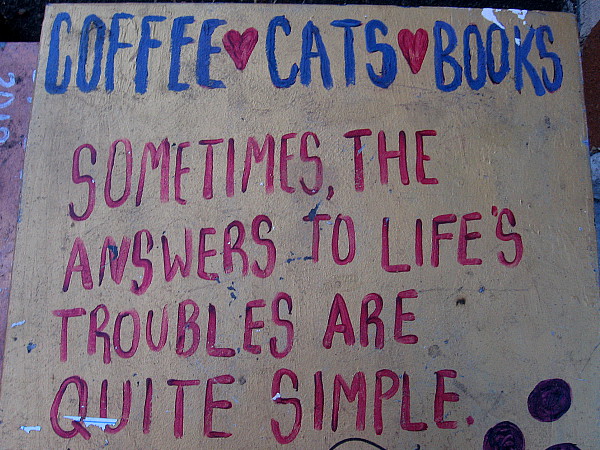 COFFEE♥CATS♥BOOKS
SOMETIMES, THE
ANSWERS TO LIFE'S
TROUBLES ARE
QUITE SIMPLE.